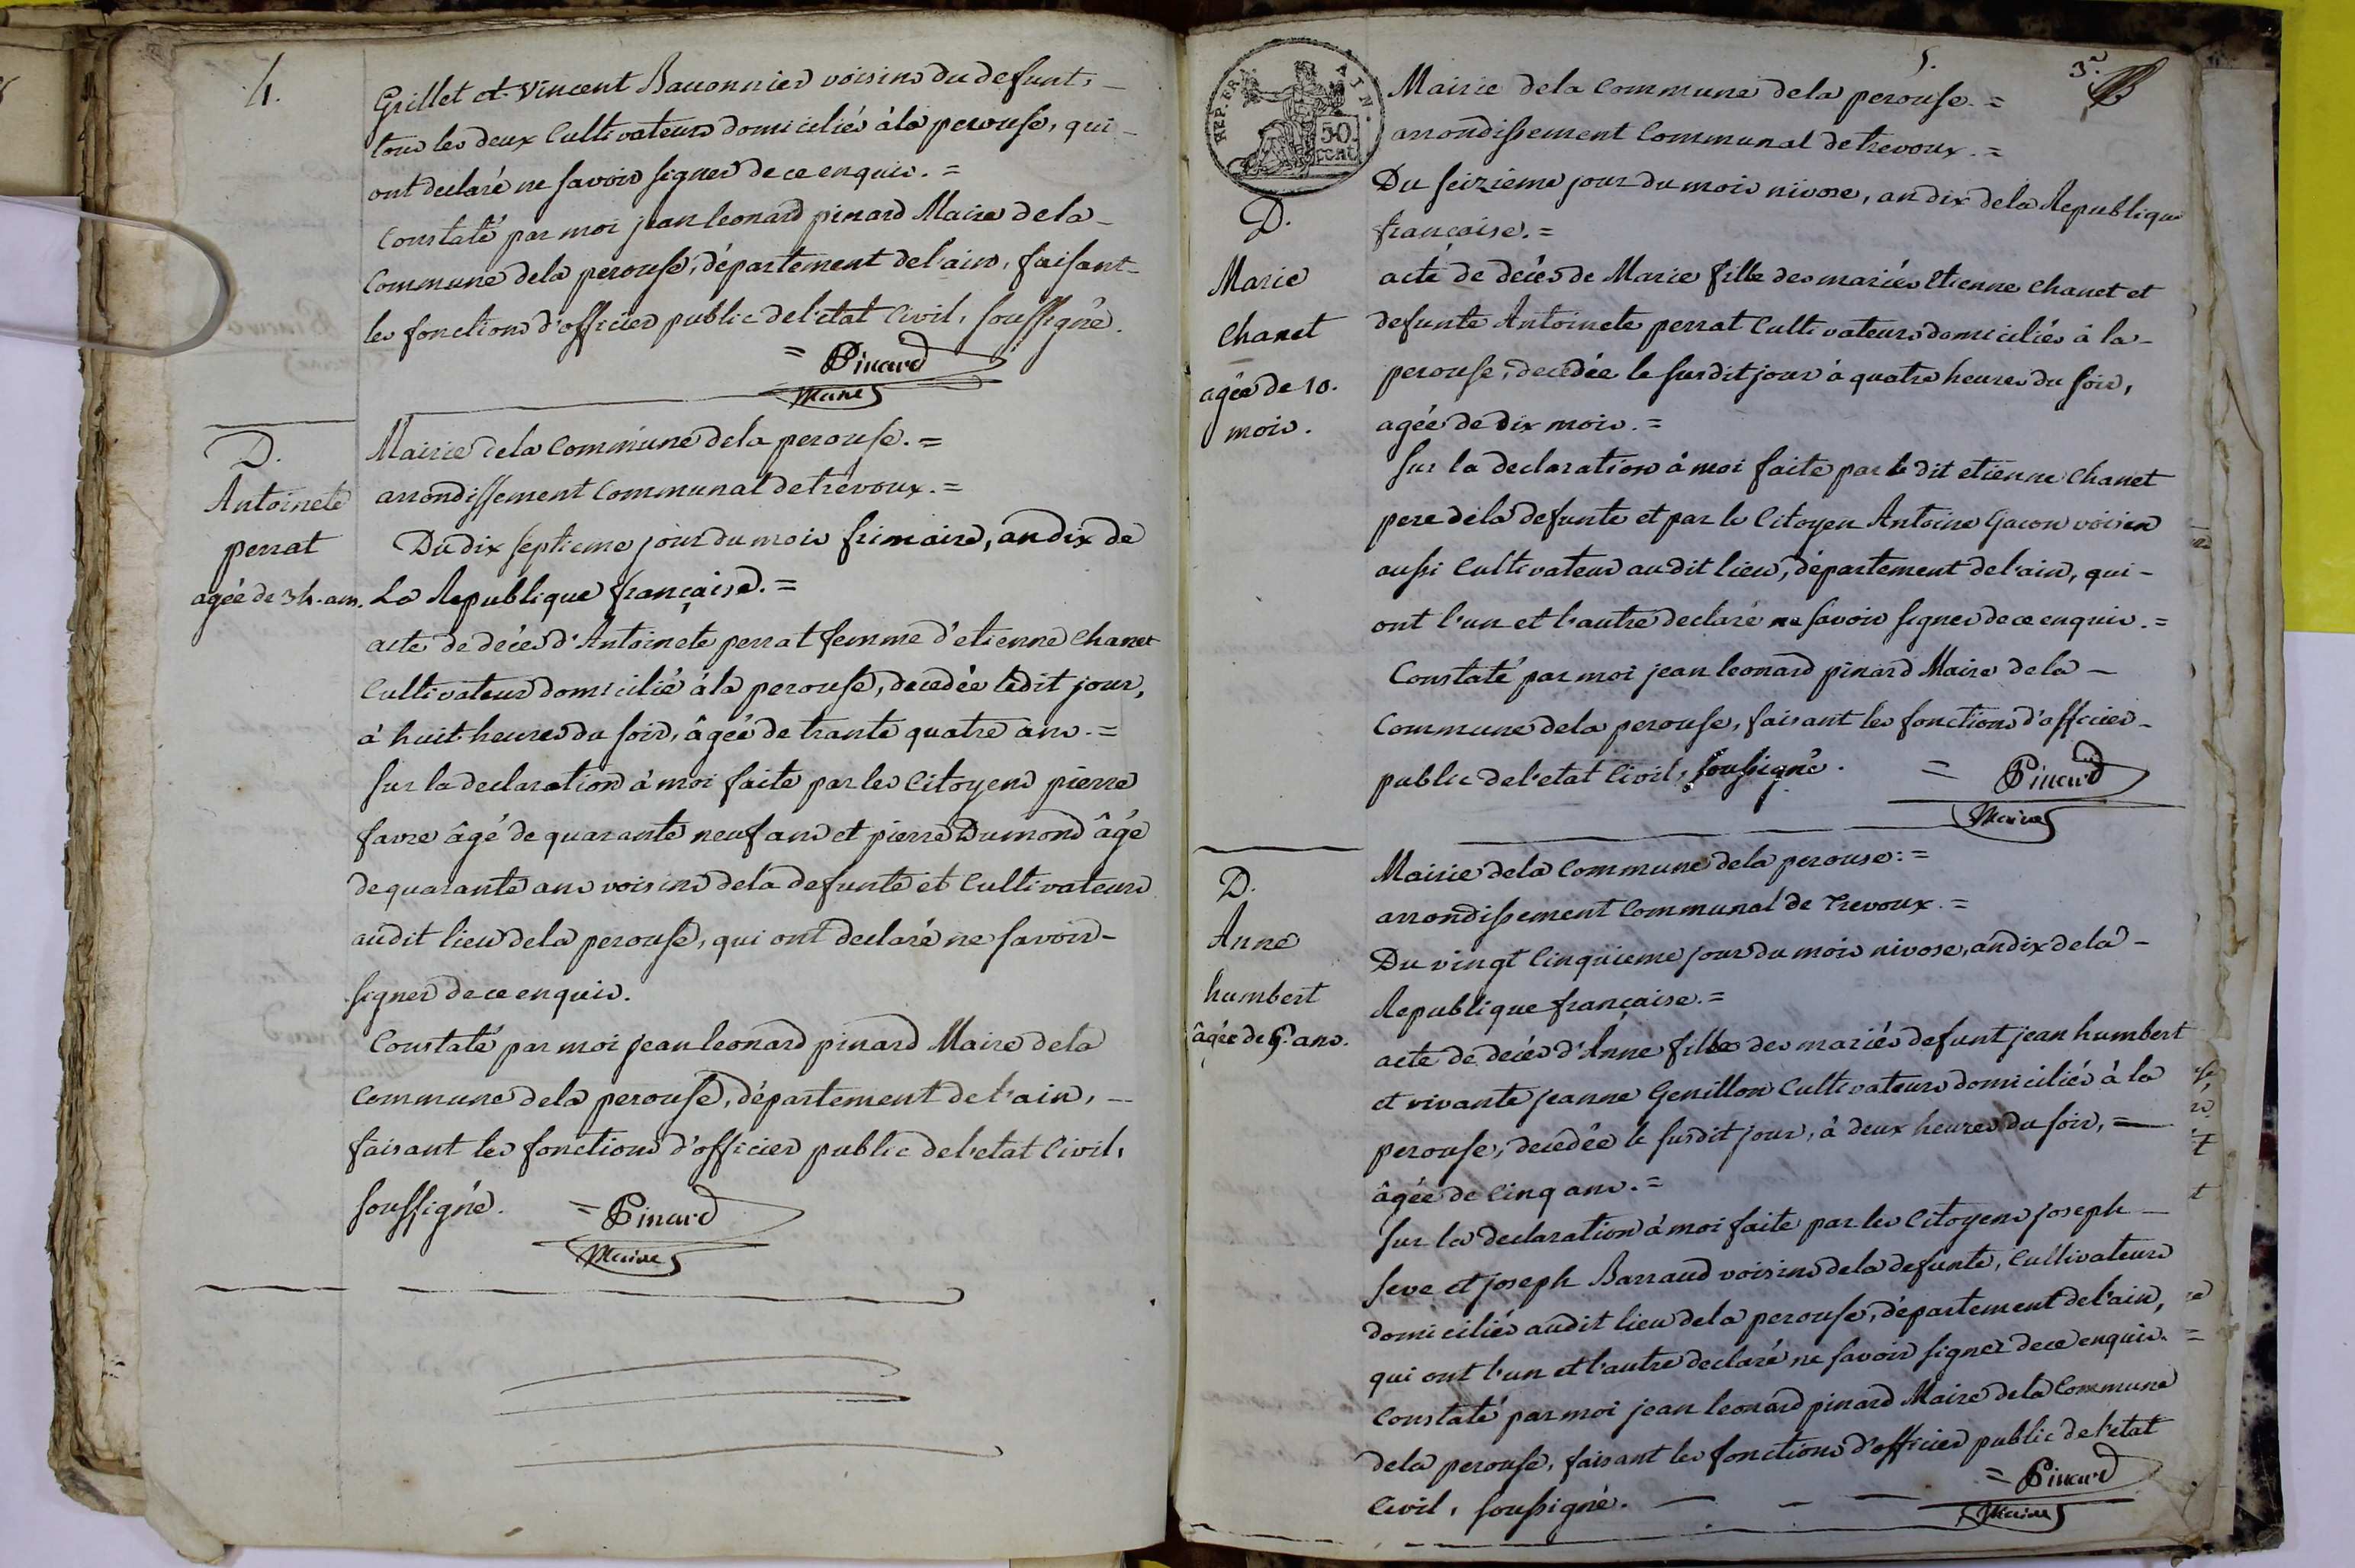 4.
Grillet et Vincent Bauonnier voisins du defunt,
tous les deux Cultivateurs domiciliés à la perouse, qui
ont declaré ne savoir signer de ce enquis. =
Constaté par moi jean leonard pinard Maire de la
Commune de la perouse, département de l'ain, faisant
les fonctions d'officier public de l'etat Civil, soussigné.
= Pinard
Maire
D.
Antoinete
perrat
agée de 34. ans.
Mairie de la Commune de la perouse. =
arrondissement Communal de trevoux. =
Du dix septieme jour du mois frimaire, an dix de
La Republique française. =
acte de décès d'Antoinete perrat femme d'etienne Chanet
Cultivateur domicilié à la perouse, decedée ledit jour,
à huit heures du soir, âgée de trante quatre ans. =
Sur la declaration à moi faite par les Citoyens pierre
favre âgé de quarante neuf ans et pierre Dumond âgé
de quarante ans voisins de la defunte et Cultivateurs
audit lieu de la perouse, qui ont declaré ne savoir
signer de ce enquis.
Constaté par moi jean leonard pinard Maire de la
Commune de la perouse, département de l'ain,
faisant les fonctions d'officier public de l'etat Civil,
soussigné. = Pinard
Maire
5.
3e.
REP. FRA
AIN.
50
cent
Mairie de la Commune de la perouse. =
arrondissement Communal de trevoux. =
Du seizieme jour du mois nivose, an dix de la Republique
française. =
D.
Marie
Chanet
agée de 10.
mois.
acte de décès de Marie fille des mariés Etienne Chanet et
defunte Antoinete perrat Cultivateurs domiciliés à la
perouse, decedée le susdit jour à quatre heures du soir,
agée de dix mois. =
Sur la declaration à moi faite par le dit etienne Chanet
pere de la defunte et par le Citoyen Antoine Gacon voisin
aussi Cultivateur audit lieu, département de l'ain, qui
ont l'un et l'autre declaré ne savoir signer de ce enquis. =
Constaté par moi jean leonard pinard Maire de la
Commune de la perouse, faisant les fonctions d'officier
public de l'etat Civil, soussigné. = Pinard
Maire
D.
Anne
humbert
âgée de 5. ans.
Mairie de la Commune de la perouse: =
arrondissement Communal de Trevoux. =
Du vingt Cinquieme jour du mois nivose, an dix de la
Republique française. =
acte de décès d'Anne fille des mariés defunt jean humbert
et vivante jeanne Genillon Cultivateurs domiciliés à la
perouse, decedée le susdit jour, à deux heures du soir, =
âgée de Cinq ans. =
Sur la declaration à moi faite par les Citoyens joseph
Seve et joseph Barraud voisins de la defunte, Cultivateurs
domiciliés audit lieu de la perouse, département de l'ain,
qui ont l'un et l'autre declaré ne savoir signer de ce enquis. =
Constaté par moi jean leonard pinard Maire de la Commune
de la perouse, faisant les fonctions d'officier public de l'etat
Civil, soussigné. = Pinard
Maire